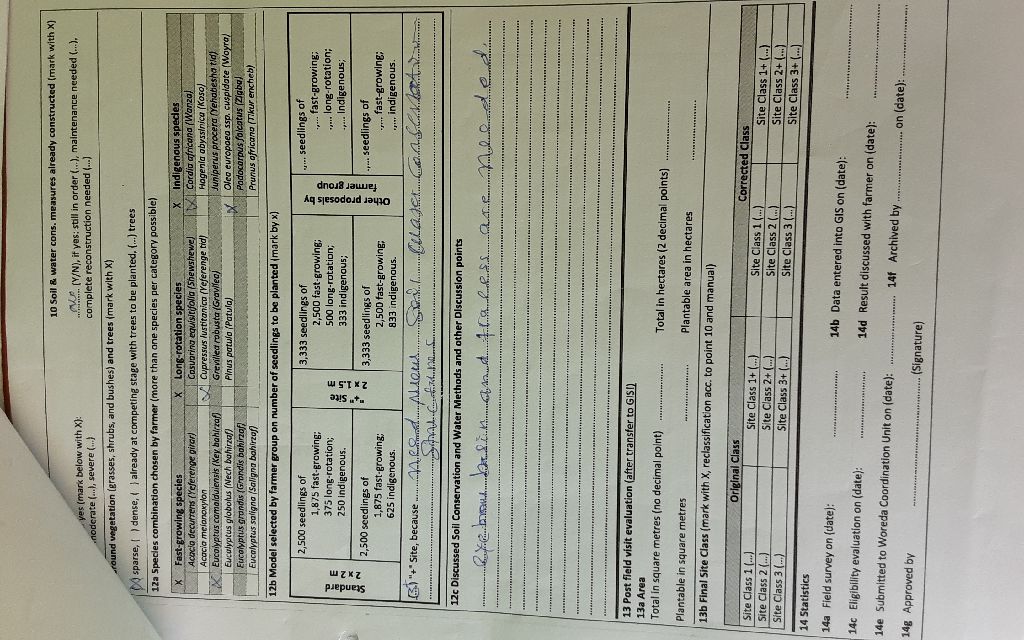 10 Soil & water cons. measures already constructed (mark with X)
(Y/N), if yes: still in order (...), maintenance needed (...),
complete reconstruction needed (...)
yes (mark below with X):
moderate (...), severe (...)
round vegetation (grasses, shrubs, and bushes) and trees (mark with X)
(X) sparse, ( ) dense, ( ) already at competing stage with trees to be planted, (...) trees
12a Species combination chosen by farmer (more than one species per category possible)
X Fast-growing species X Long-rotation species X Indigenous species
Acacia decurrens (Yeferenge girar) Casuarina equisitifolia (Shewshewe) X Cordia africana (Wanza)
Acacia melanoxylon X Cupressus lustitanica (Yeferenge tid) Hagenia abyssinica (Koso)
X Eucalyptus camaldulensis (Key bahirzaf) Grevillea robusta (Gravilea) Juniperus procera (Yehabesha tid)
Eucalyptus globulus (Nech bahirzaf) Pinus patula (Patula) Olea europaea ssp. cuspidate (Woyra)
Eucalyptus grandis (Grandis bahirzaf) X Podocarpus falcatus (Zigba)
Eucalyptus saligna (Saligna bahirzaf) Prunus africana (Tikur encheb)
12b Model selected by farmer group on number of seedlings to be planted (mark by x)
Standard
2 x 2 m
2,500 seedlings of
1,875 fast-growing;
375 long-rotation;
250 indigenous.
2,500 seedlings of
1,875 fast-growing;
625 indigenous.
"+" Site
2 x 1.5 m
3,333 seedlings of
2,500 fast-growing;
500 long-rotation;
333 indigenous;
3,333 seedlings of
2,500 fast-growing;
833 indigenous.
Other proposals by
farmer group
..... seedlings of
..... fast-growing;
..... long-rotation;
..... indigenous;
..... seedlings of
..... fast-growing;
..... indigenous.
"+" Site, because need new Soil
12c Discussed Soil Conservation and Water Methods and other Discussion points
eyebrow basin and traces are needed.
13 Post field visit evaluation (after transfer to GIS!)
13a Area
Total in square metres (no decimal point) .......... Total in hectares (2 decimal points) ..........
Plantable in square metres .......... Plantable area in hectares ..........
13b Final Site Class (mark with X, reclassification acc. to point 10 and manual)
Original Class Corrected Class
Site Class 1 (...) Site Class 1+ (...) Site Class 1 (...) Site Class 1+ (...)
Site Class 2 (...) Site Class 2+ (...) Site Class 2 (...) Site Class 2+ (...)
Site Class 3 (...) Site Class 3+ (...) Site Class 3 (...) Site Class 3+ (...)
14 Statistics
14a Field survey on (date): .......... 14b Data entered into GIS on (date): ..........
14c Eligibility evaluation on (date): .......... 14d Result discussed with farmer on (date): ..........
14e Submitted to Woreda Coordination Unit on (date): .......... 14f Archived by .......... on (date): ..........
14g Approved by .......... (Signature)